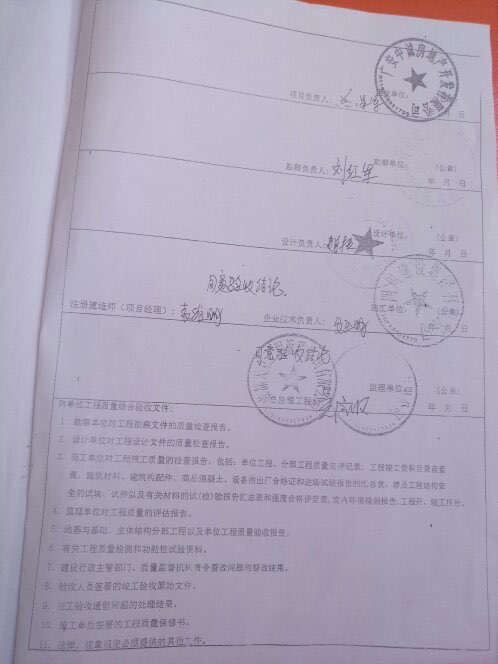 广安中诚房地产开发有限公司
项目负责人：
单位：
年 月 日
勘察负责人：刘红军
勘察单位：
（公章）
年 月 日
设计负责人：
设计单位：
（公章）
年 月 日
同意验收结论
注册建造师（项目经理）：
企业技术负责人：
施工单位：
（公章）
年 月 日
同意验收结论
总监理工程师
监理单位：
（公章）
年 月 日
附单位工程质量综合验收文件：
1. 勘察单位对工程勘察文件的质量检查报告。
2. 设计单位对工程设计文件的质量检查报告。
3. 施工单位对工程施工质量的检查报告，包括：单位工程、分部工程质量自评记录，工程竣工资料目录自查
表，建筑材料、建筑构配件、商品混凝土、设备的出厂合格证和进场试验报告的汇总表，涉及工程结构安
全的试块、试件以及有关材料的试(检)验报告汇总表和强度合格评定表，室内环境检测报告，工程开、竣工报告。
4. 监理单位对工程质量的评估报告。
5. 地基与基础、主体结构分部工程以及单位工程质量验收报告。
6. 有关工程质量检测和功能性试验资料。
7. 建设行政主管部门、质量监督机构责令整改问题的整改结果。
8. 验收人员签署的竣工验收原始文件。
9. 竣工验收遗留问题的处理结果。
10. 施工单位签署的工程质量保修书。
11. 法律、规章规定必须提供的其他文件。